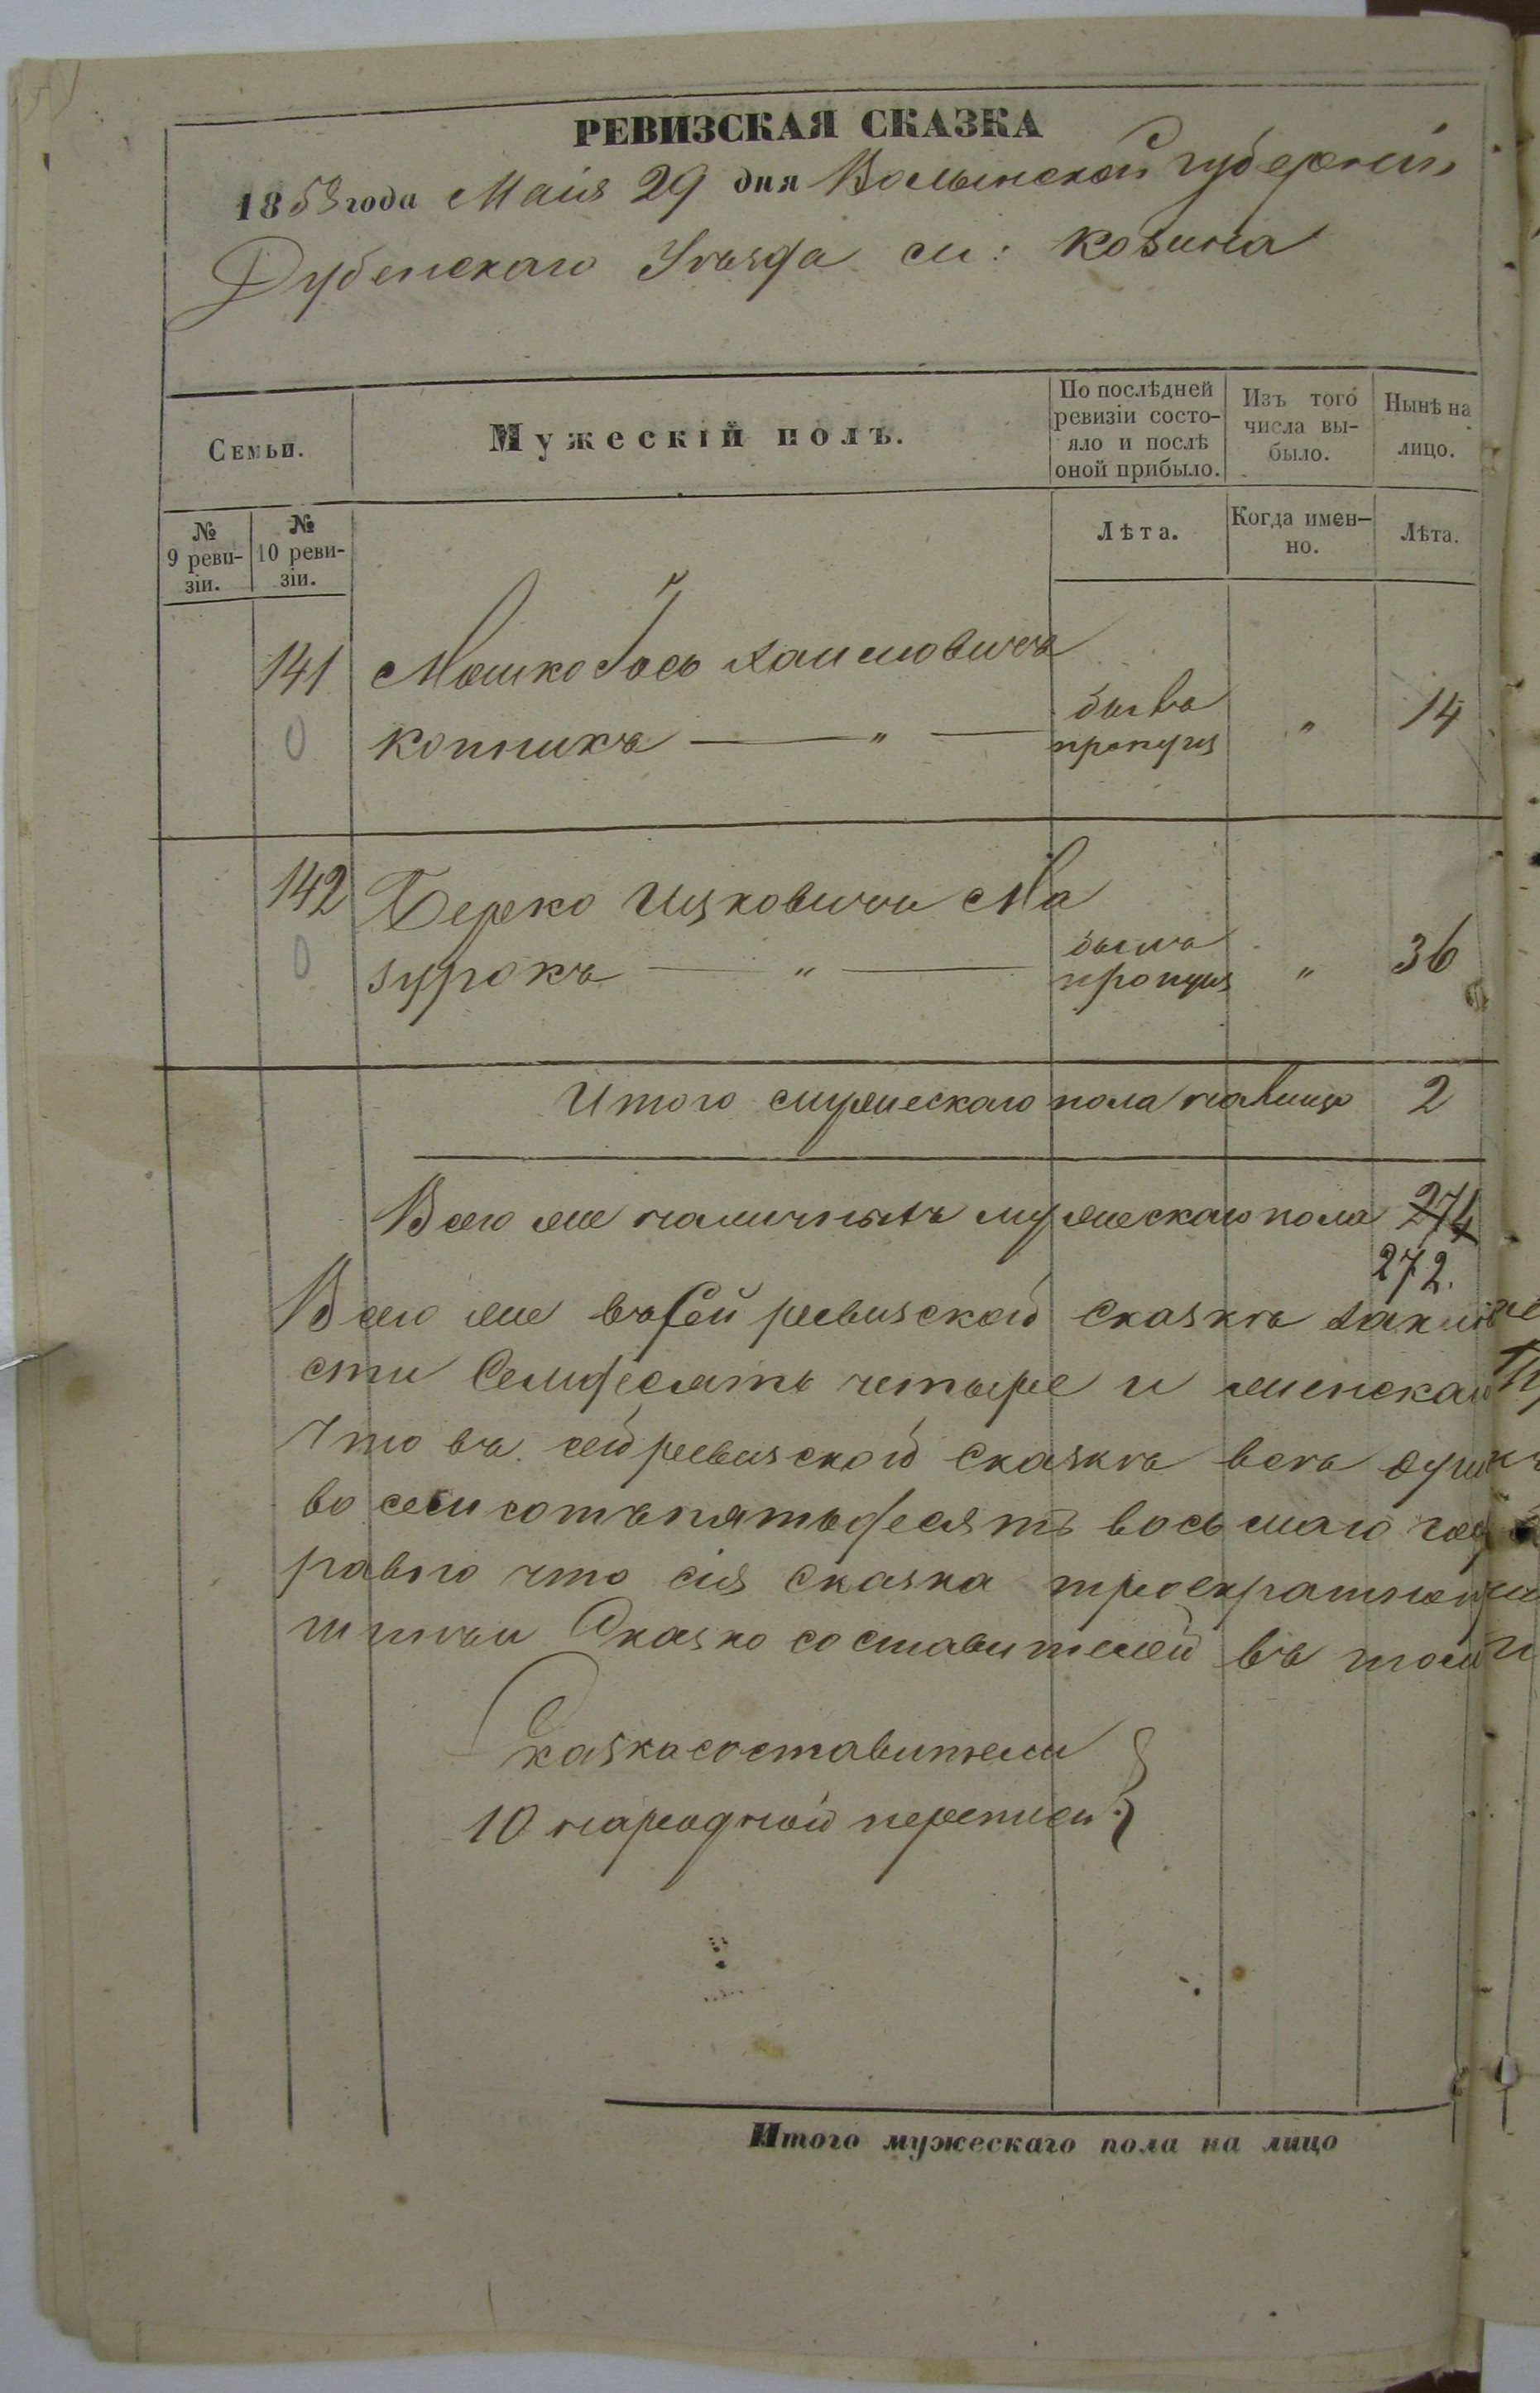 РЕВИЗСКАЯ СКАЗКА
1858 года Маія 29 дня Волынской Губерніи
Дубенскаго Уѣзда м: Козина
Семьи.
Мужескій полъ.
По послѣдней ревизіи состо-
яло и послѣ
оной прибыло.
Изъ того
числа вы-
было.
Нынѣ на
лицо.
№
9 реви-
зіи.
№
10 реви-
зіи.
Лѣта.
Когда имен-
но.
Лѣта.
141 Мошко Іось Хаимовичъ
0 Копникъ — " — былъ " 14
пропущ
142 Берко Ицковичъ Ма
0 зурокъ — " — былъ " 36
пропущ
Итого мужескаго пола налицо 2
Всего же наличныхъ мужескаго пола 274
272.
Всего же въ сей ревизской Сказкѣ заключ
сти Семидесять четыре и женскаго
Что въ сей ревизской Сказкѣ всѣ души
восемсотъ пятьдесятъ восьмаго год
равно что сія Сказка троекратно
Сказко составителей въ томъ
Сказкасоставители
10 народной переписи
Итого мужескаго пола на лицо